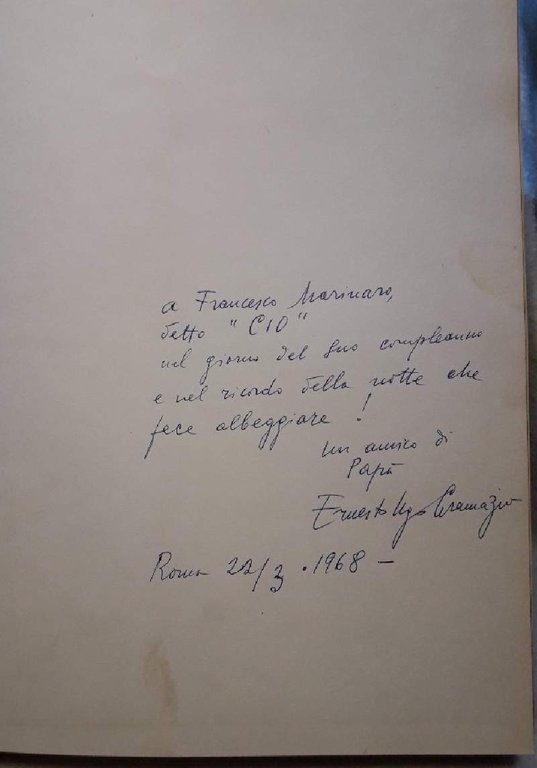 a Francesco Marinaro,
detto "CIO"
nel giorno del suo compleanno
e nel ricordo della notte che
fece albeggiare !
un amico di
Papà
Ernesto Ugo Gramazio
Roma 22/3.1968 -